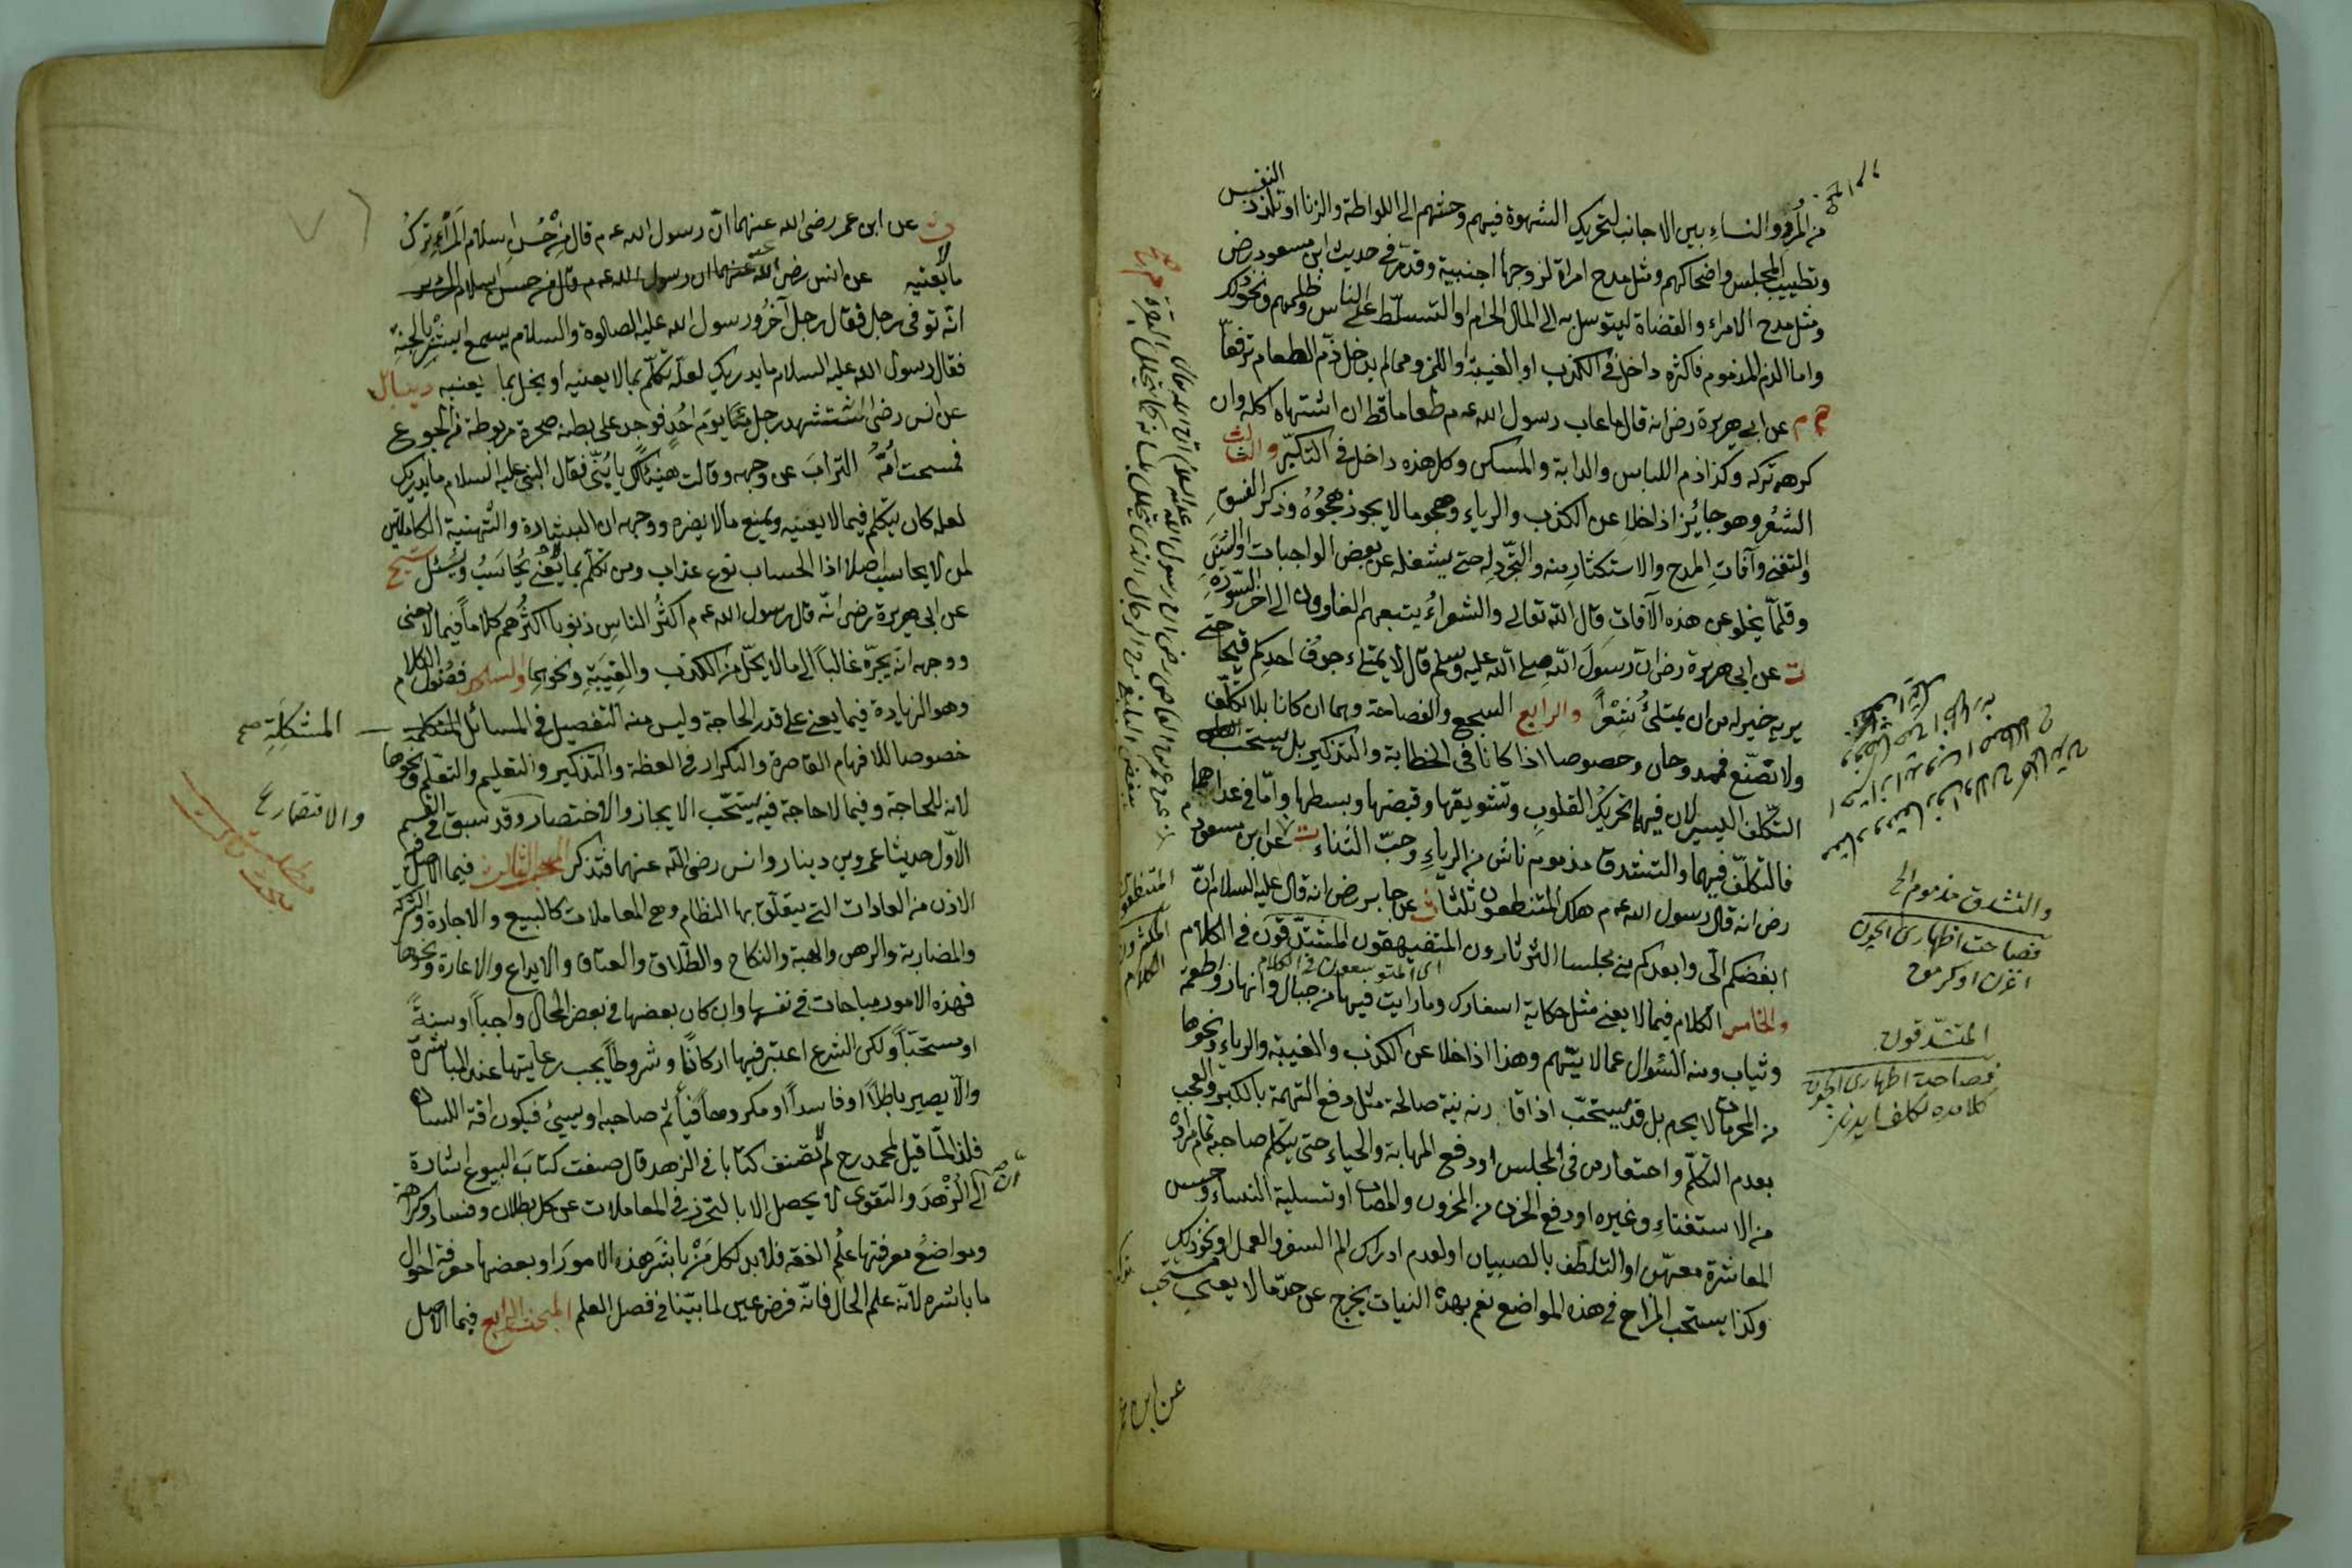 من المُرد والنساء بين الاجانب لتحريك الشهوة فيهم وحثهم الى اللواطة والزنا او تلذذ النفس
وتطييب المجلس واضحاكهم ومثل مدح امراة لزوجها اجنبية وقد مرّ في حديث ابن مسعود رض
ومثل مدح الامراء والقضاة ليتوسل به الى المال الحرام او التسلّط على الناس وظلمهم ونحو ذلك
واما الذم المذموم فاكثره داخل في الكذب او الغيبة او اللمز ومما لم يدخل ذمّ الطعام ترفعاً
خ م عن ابي هريرة رض انه قال ما عاب رسول الله عم طعاما قط ان اشتهاه اكله وان
كرهه تركه وكذا ذم اللباس والدابة والمسكن وكل هذه داخل في التكبّر والثالث
الشعر وهو جائز اذا خلا عن الكذب والرياء وهجو ما لا يجوز هجوُهُ وذكر الفسق
والتغني وآفات المدح والاستكثار منه والتجرّد له حتى يشغله عن بعض الواجبات والسنن
وقلّما يخلو عن هذه الآفات قال الله تعالى والشعراءُ يتبعهم الغاوون الى اخر السورة
ت عن ابي هريرة رض ان رسول الله صلى الله عليه وسلم قال لا يمتلء جوف احدكم قيحا حتى
يريه خير له من ان يمتلئ شعراً والرابع السجع والفصاحة وهما ان كانا بلا تكلّف
ولا تصنّع فممدوحان وخصوصا اذا كانا في الخطابة والتذكير بل يستحب
التكلّف اليسير لان فيهما تحريك القلوب وتشويقها وقبضها وبسطها وامّا في عداهما
فالتكلّف فيهما والتشدق مذموم ناش من الرياء وحبّ الثناء م عن ابن مسعود
رض انه قال رسول الله عم هلك المتنطعون ثلثا ت عن جابر رض انه قال عليه السلام انّ
ابغضكم الىّ وابعدكم مني مجلسا الثرثارون المتفيهقون المتشدّقون في الكلام
اى المتوسعون في الكلام
والخامس الكلام فيما لا يعنى مثل حكاية اسفارك وما رايت فيها من جبال وانهار واطعمة
وثياب ومنه السّؤال عما لا يهّم وهذا اذا خلا عن الكذب والغيبة والرياء ونحوها
من المحرمات لا يحرم بل قد يستحبّ اذا قارنه نية صالحة مثل دفع التهمة بالكبر والعجب
بعدم التكلّم واحتقار من في المجلس او دفع المهابة والحياء حتى يتكلم صاحبه تمام مراده
من الاستفتاء وغيره او دفع الحزن من المحزون والمصاب او تسلية النساء وحسن
المعاشرة معهنّ او التلطّف بالصبيان او لعدم ادراك الم السفر والعمل او نحو ذلك
وكذا يستحب المزاح في هذه المواضع نعم بهذه النيات يخرج عن حدّ ما لا يعني
والتشدق مذموم الخ
فصاحت اظهارى ايچون
المتشدّقون
فصاحة اظهارى ايچون
كلامده تكلف ايدنلر
المتنطعون
الكلام
عن ابن عمر
ت عن ابن عمر رضى الله عنهما انّ رسول الله عم قال من حُسن اسلام المرء ترك
ما لا يعنيه عن انس رضى الله عنه
انّه توفى رجل فقال رجل آخر ورسول الله عليه الصلوة والسلام يسمع ابشر بالجنة
فقال رسول الله عليه السلام ما يدريك لعلّه تكلّم بما لا يعنيه او بخل بما يعنيه
عن انس رضى استشهد رجل منّا يوم اُحُدٍ فوجد على بطنه صخرة مربوطة من الجوع
فمسحت اُمّه التراب عن وجهه وقالت هنيئا لك يا بُنىّ فقال النبى عليه السلام ما يدريك
لعله كان يتكلم فيما لا يعنيه ويمنع ما لا يضره ووجهه ان البشارة والتهنية الكاملتين
لمن لا يحاسب اصلا اذا الحساب نوع عذاب ومن تكلّم بما لا يعنى يُحاسَبُ ويُسئل شيخ
عن ابى هريرة رض انّه قال رسول الله عم اكثرُ الناس ذنوبا اكثرُهم كلاماً فيما لا يعنى
ووجهه انه يجرّه غالباً الى ما لا يحلّ من الكذب والغيبة ونحوهما والسادس فضُول الكلام
وهو الزيادة فيما يعنى على قدر الحاجة وليس منه التفصيل في المسائل المشكلة
خصوصا للافهام القاصرة والتكرار في العظة والتذكير والتعليم والتعلم ونحوها
لانه للحاجة وفيما لا حاجة فيه يستحّب الايجاز والاختصار وقد سبق في القسم
الاوّل حديثا عمرو بن دينار وانس رضى الله عنهما فتذكر المبحث الثالث فيما الاصل فيه
الاذن من العادات التى يتعلّق بها النظام وهى المعاملات كالبيع والاجارة والشركة
والمضاربة والرهن والهبة والنكاح والطلاق والعتاق والايداع والاعارة ونحوها
فهذه الامور مباحات في نفسها وان كان بعضها في بعض المحال واجباً او سنةً
او مستحبّاً ولكن الشرع اعتبر فيها اركاناً وشروطاً يجب رعايتها عند المباشرة
والّا يصير باطلاً او فاسداً او مكروهاً فيأثم صاحبه او يسيئ فيكون افة اللسان
فلذا لمّا قيل لمحمد رح لم لا تصنف كتابا في الزهد قال صنفت كتاب البيوع اشارة
الى ان الزهد والتقوى لا يحصل الا بالتحرز في المعاملات عن كل بطلان وفساد وكراهة
ومواضع معرفتها علم الفقه فلا بد لكل مَنْ باشر هذه الامور او بعضها معرفة احوال
ما باشره لانّه علم الحال فانّه فرض عين لما بيّنا في فصل العلم المبحث الرابع فيما الاصل
المشكلةِ صح
والاقتصار